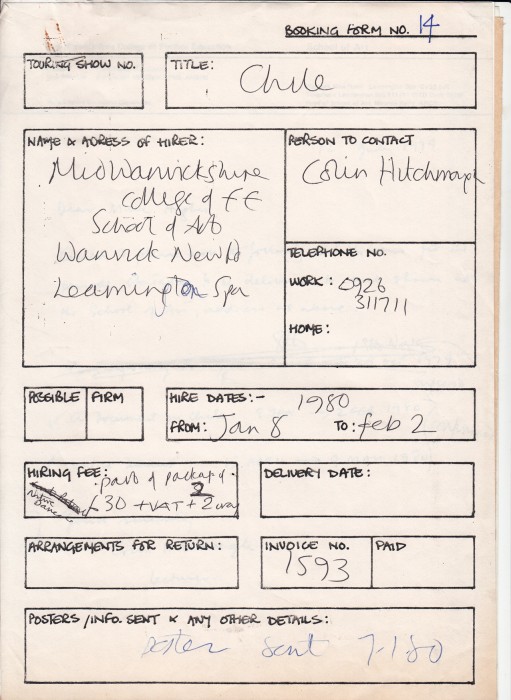 BOOKING FORM NO. 14
TOURING SHOW NO.
TITLE:
Chile
NAME & ADRESS OF HIRER:
MidWarwickshire
College of FE
School of Art
Warwick New Rd
Leamington Spa
PERSON TO CONTACT
Colin Hitchmough
TELEPHONE NO.
WORK: 0926
311711
HOME:
POSSIBLE
FIRM
HIRE DATES:- 1980
FROM: Jan 8 TO: feb 2
HIRING FEE: part of package of 2
Native
Dance
£30 + VAT + 2 way
DELIVERY DATE:
ARRANGEMENTS FOR RETURN:
INVOICE NO.
1593
PAID
POSTERS/INFO. SENT & ANY OTHER DETAILS:
poster sent 7-1-80